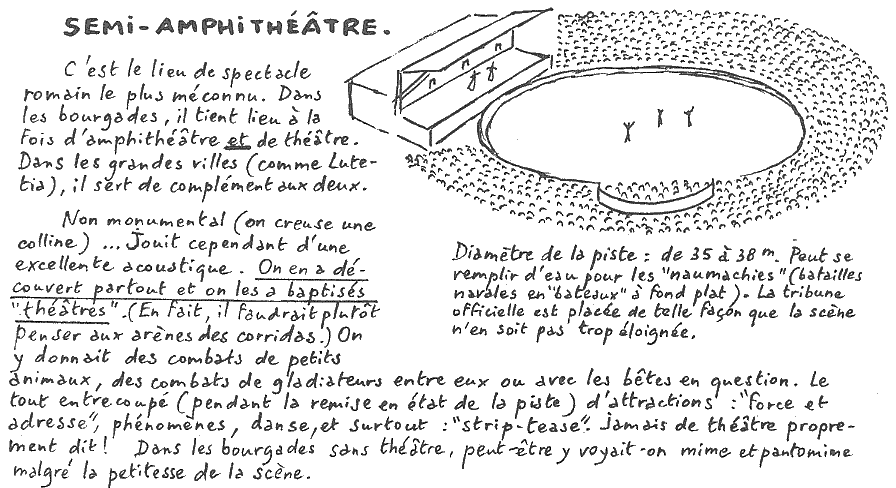 SEMI-AMPHITHÉÂTRE.
C'est le lieu de spectacle
romain le plus méconnu. Dans
les bourgades, il tient lieu à la
fois d'amphithéâtre et de théâtre.
Dans les grandes villes (comme Lute-
tia), il sert de complément aux deux.
Non monumental (on creuse une
colline) ... Jouit cependant d'une
excellente acoustique. On en a dé-
couvert partout et on les a baptisés
"théâtres". (En fait, il faudrait plutôt
penser aux arènes des corridas.) On
y donnait des combats de petits
animaux, des combats de gladiateurs entre eux ou avec les bêtes en question. Le
tout entrecoupé (pendant la remise en état de la piste) d'attractions : "force et
adresse", phénomènes, danse, et surtout : "strip-tease". Jamais de théâtre propre-
ment dit ! Dans les bourgades sans théâtre, peut-être y voyait-on mime et pantomime
malgré la petitesse de la scène.
Diamètre de la piste : de 35 à 38 m. Peut se
remplir d'eau pour les "naumachies" (batailles
navales en "bateaux" à fond plat). La tribune
officielle est placée de telle façon que la scène
n'en soit pas trop éloignée.